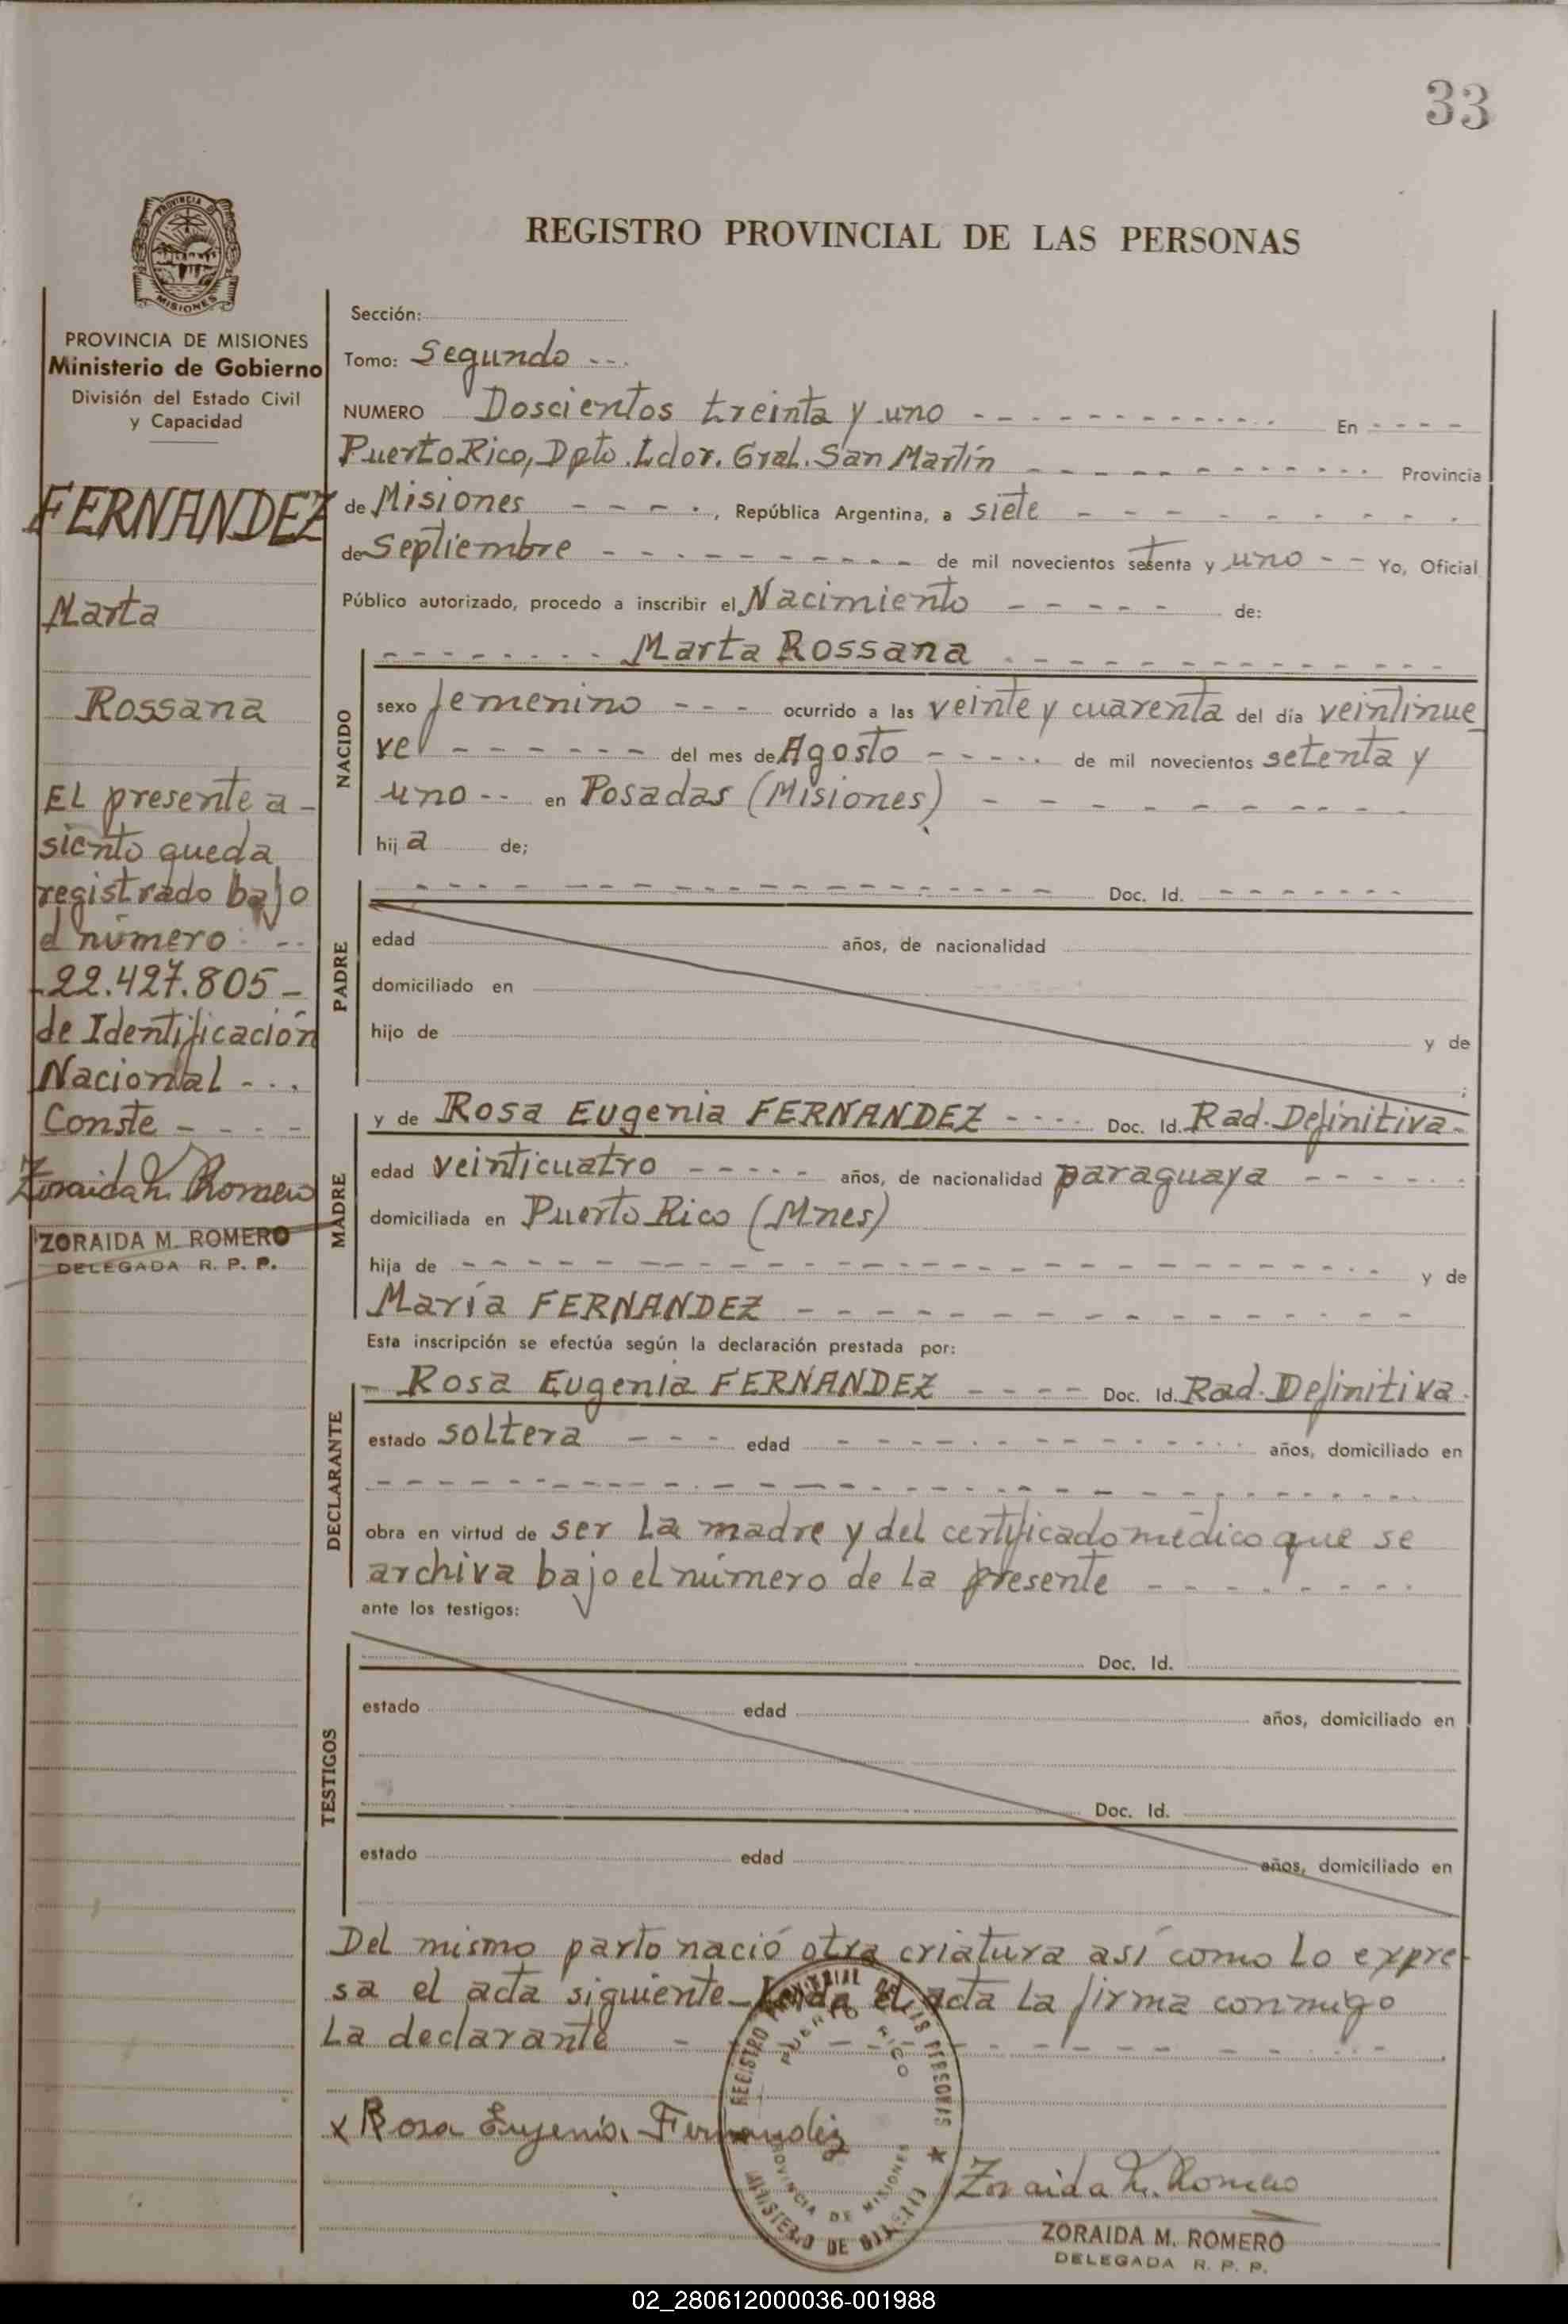 33
PROVINCIA DE
MISIONES
REGISTRO PROVINCIAL DE LAS PERSONAS
PROVINCIA DE MISIONES
Ministerio de Gobierno
División del Estado Civil
y Capacidad
FERNANDEZ
Marta
Rossana
EL presente a-
siento queda
registrado bajo
el número --
-22.427.805-
de Identificación
Nacional - - -
Conste - - - -
Zoraida M. Romero
ZORAIDA M. ROMERO
DELEGADA R. P. P.
Sección:
Tomo: Segundo - - -
NUMERO Doscientos treinta y uno - - - - - - - - - - - En - - - -
Puerto Rico, Dpto. Ldor. Gral. San Martín - - - - - - - - - - - Provincia
de Misiones - - - - -, República Argentina, a siete - - - - - - - - -
de Septiembre - - - - - - - - - - de mil novecientos setenta y uno - - Yo, Oficial
Público autorizado, procedo a inscribir el Nacimiento - - - - - de:
- - - - - - - - Marta Rossana - - - - - - - - - - - -
NACIDO
sexo femenino - - - ocurrido a las veinte y cuarenta del día veintinue
ve - - - - - - - del mes de Agosto - - - - - de mil novecientos setenta y
uno - - en Posadas (Misiones) - - - - - - - - -
hija de;
PADRE
- - - - - - - - - - - - - - - - - - Doc. Id. - - - - - - -
edad años, de nacionalidad
domiciliado en
hijo de y de
;
MADRE
y de Rosa Eugenia FERNANDEZ - - - - Doc. Id. Rad. Definitiva -
edad veinticuatro - - - - - años, de nacionalidad paraguaya - - - - - -
domiciliada en Puerto Rico (Mnes)
hija de - - - - - - - - - - - - - - - - - - - y de
María FERNANDEZ - - - - - - - - - - - - -
Esta inscripción se efectúa según la declaración prestada por:
DECLARANTE
- Rosa Eugenia FERNANDEZ - - - - Doc. Id. Rad. Definitiva.
estado soltera - - - edad - - - - - - - - - - - - años, domiciliado en
- - - - - - - - - - - - - - - - - - - - - - - -
obra en virtud de ser la madre y del certificado médico que se
archiva bajo el número de la presente - - - - - - - -
ante los testigos:
TESTIGOS
Doc. Id.
estado edad años, domiciliado en
Doc. Id.
estado edad años, domiciliado en
Del mismo parto nació otra criatura así como lo expre-
sa el acta siguiente - Leída el acta la firma conmigo
la declarante - - - - - - - - - - - -
x Rosa Eugenia Fernandez
REGISTRO PROVINCIAL DE LAS PERSONAS
PUERTO RICO
PROVINCIA DE MISIONES
MINISTERIO DE GOBIERNO
Zoraida M. Romero
ZORAIDA M. ROMERO
DELEGADA R. P. P.
02_280612000036-001988